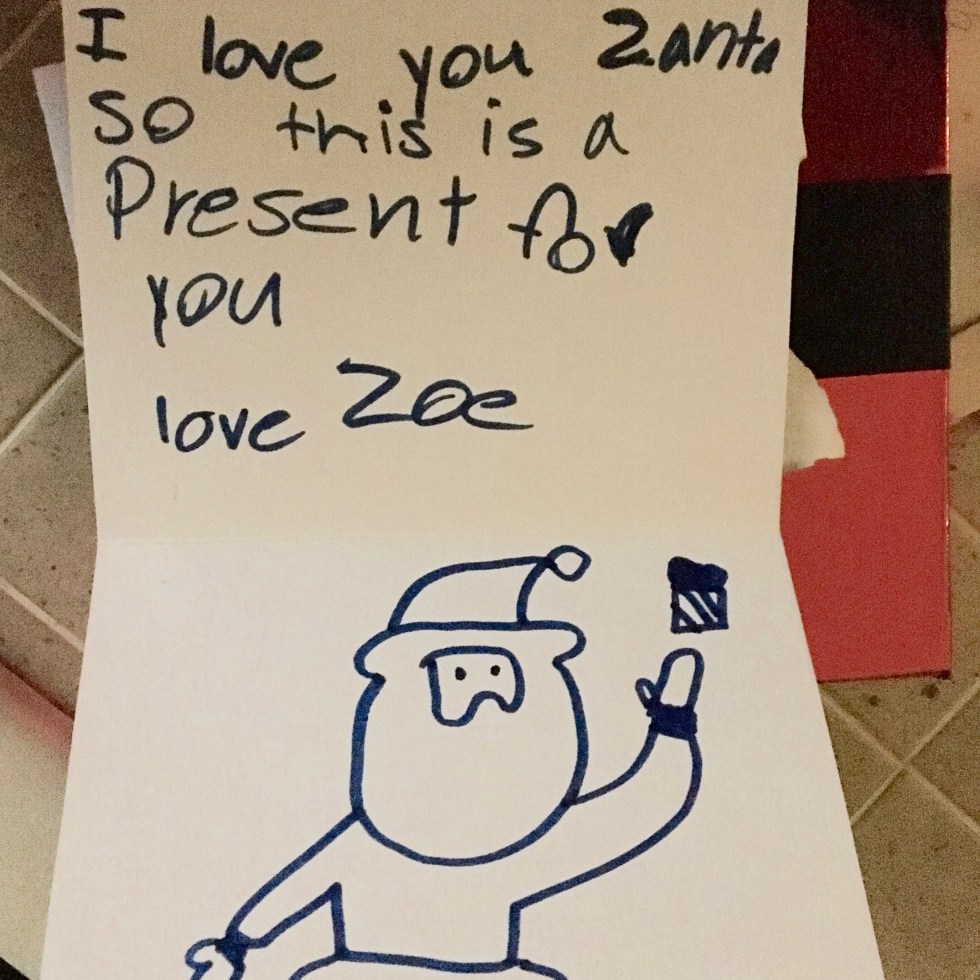 I love you Zanta
so this is a
Present for
you
love Zoe